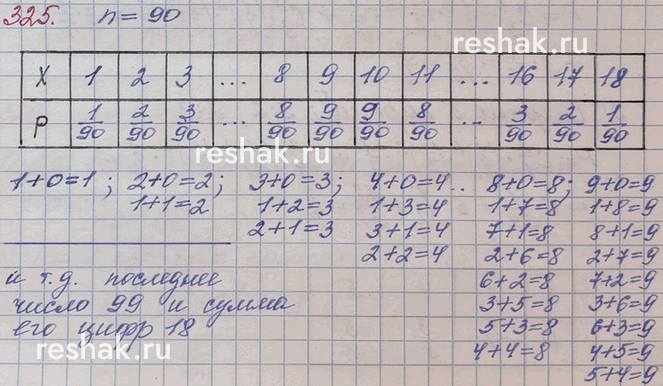 325. n = 90
reshak.ru
X 1 2 3 ... 8 9 10 11 ... 16 17 18
P 1/90 2/90 3/90 ... 8/90 9/90 9/90 8/90 ... 3/90 2/90 1/90
reshak.ru
1+0=1; 2+0=2; 3+0=3; 4+0=4.. 8+0=8; 9+0=9
1+1=2 1+2=3 1+3=4 1+7=8 1+8=9
2+1=3 3+1=4 7+1=8 8+1=9
2+2=4 2+6=8 2+7=9
и т.д. последнее 6+2=8 7+2=9
число 99 и сумма 3+5=8 3+6=9
его цифр 18 5+3=8 6+3=9
4+4=8 4+5=9
5+4=9
reshak.ru
reshak.ru